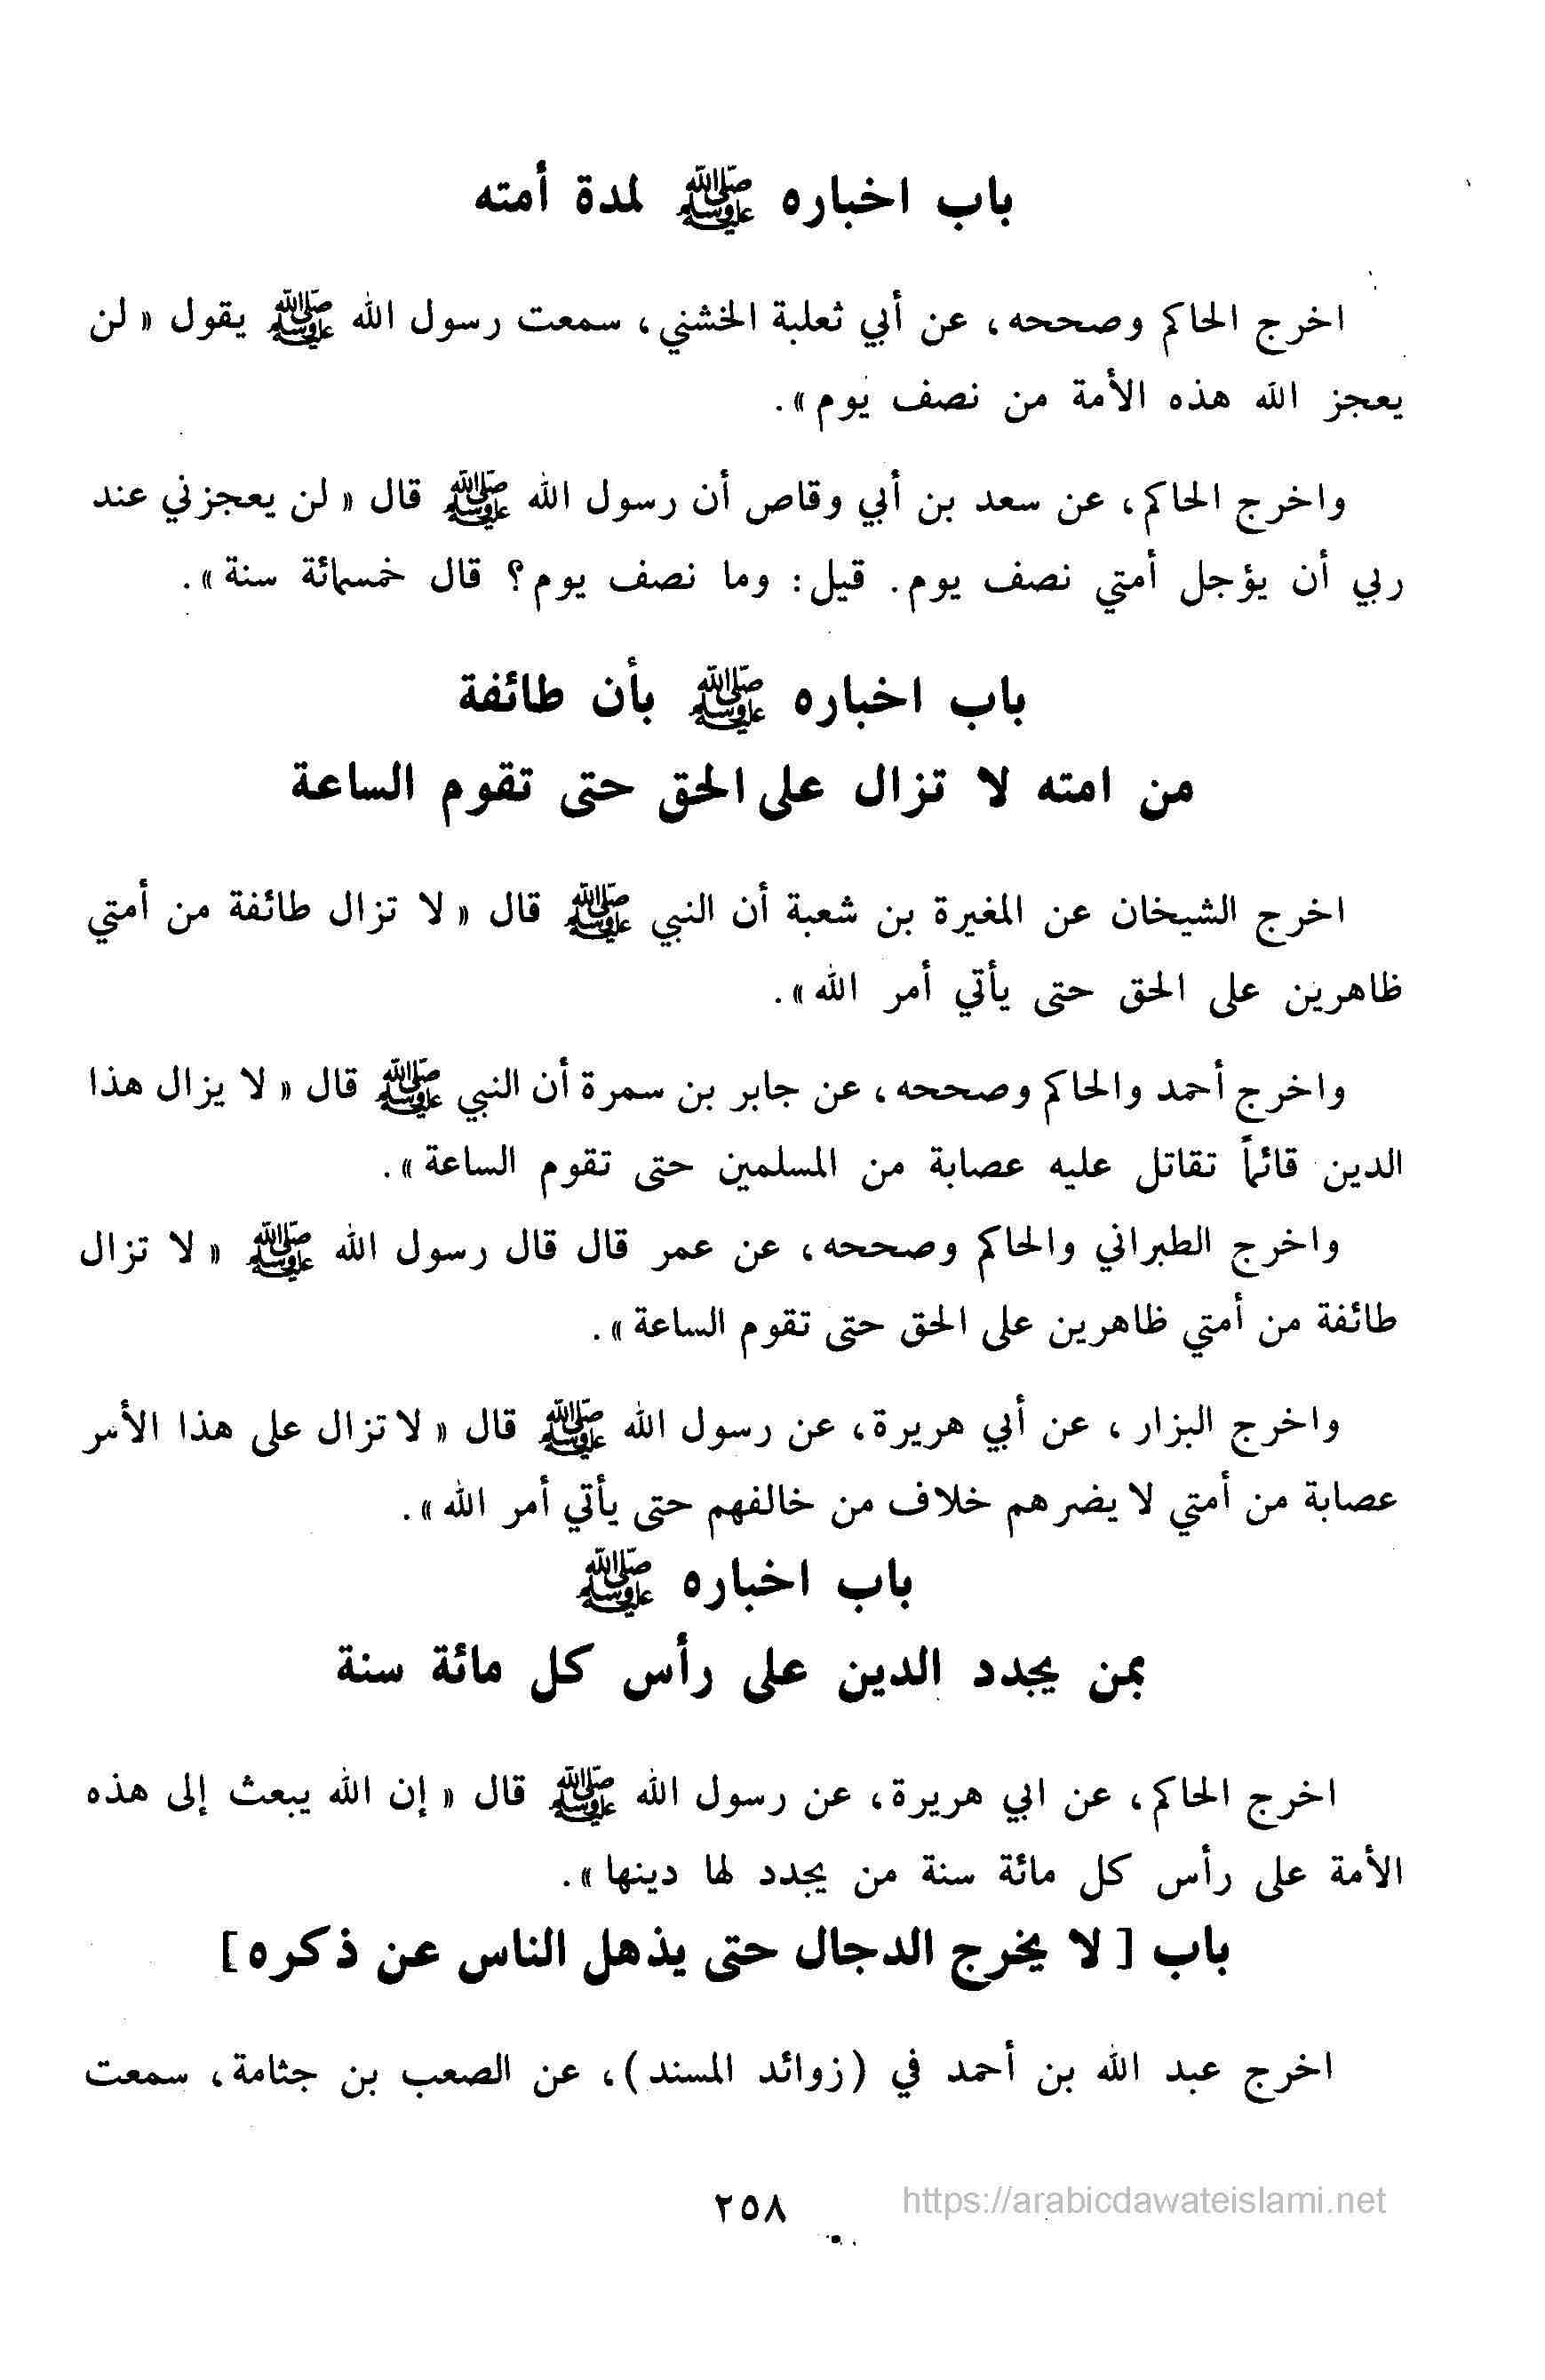 باب اخباره ﷺ لمدة أمته
اخرج الحاكم وصححه، عن أبي ثعلبة الخشني، سمعت رسول الله ﷺ يقول « لن
يعجز الله هذه الأمة من نصف يوم ».
واخرج الحاكم، عن سعد بن أبي وقاص أن رسول الله ﷺ قال « لن يعجزني عند
ربي أن يؤجل أمتي نصف يوم. قيل: وما نصف يوم؟ قال خمسمائة سنة ».
باب اخباره ﷺ بأن طائفة
من امته لا تزال على الحق حتى تقوم الساعة
اخرج الشيخان عن المغيرة بن شعبة أن النبي ﷺ قال « لا تزال طائفة من أمتي
ظاهرين على الحق حتى يأتي أمر الله ».
واخرج أحمد والحاكم وصححه، عن جابر بن سمرة أن النبي ﷺ قال « لا يزال هذا
الدين قائماً تقاتل عليه عصابة من المسلمين حتى تقوم الساعة ».
واخرج الطبراني والحاكم وصححه، عن عمر قال قال رسول الله ﷺ « لا تزال
طائفة من أمتي ظاهرين على الحق حتى تقوم الساعة ».
واخرج البزار ، عن أبي هريرة، عن رسول الله ﷺ قال « لا تزال على هذا الأمر
عصابة من أمتي لا يضرهم خلاف من خالفهم حتى يأتي أمر الله ».
باب اخباره ﷺ
بمن يجدد الدين على رأس كل مائة سنة
اخرج الحاكم، عن ابي هريرة، عن رسول الله ﷺ قال « إن الله يبعث إلى هذه
الأمة على رأس كل مائة سنة من يجدد لها دينها ».
باب [ لا يخرج الدجال حتى يذهل الناس عن ذكره ]
اخرج عبد الله بن أحمد في (زوائد المسند)، عن الصعب بن جثامة، سمعت
٢٥٨
https://arabicdawateislami.net